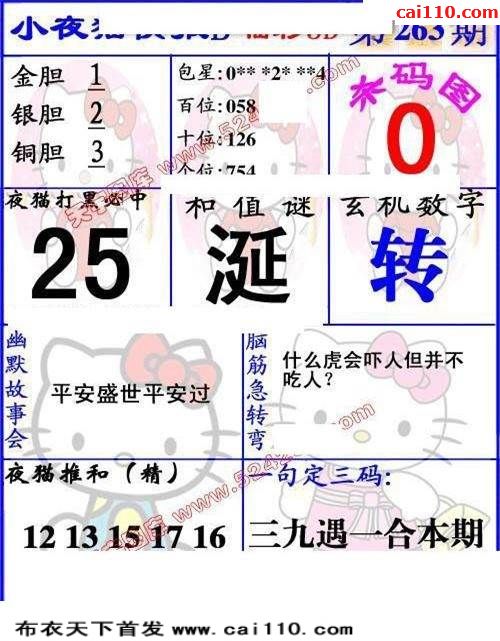 cai110.com
小夜猫
福彩3D
第263期
金胆 1
银胆 2
铜胆 3
包星:0** *2* **4
百位:058
十位:126
个位:754
杀码图
0
夜猫打黑必中
25
和值谜
涎
玄机数字
转
幽默故事会
平安盛世平安过
脑筋急转弯
什么虎会吓人但并不
吃人?
夜猫推和(精)
12 13 15 17 16
一句定三码:
三九遇一合本期
布衣天下首发 www.cai110.com